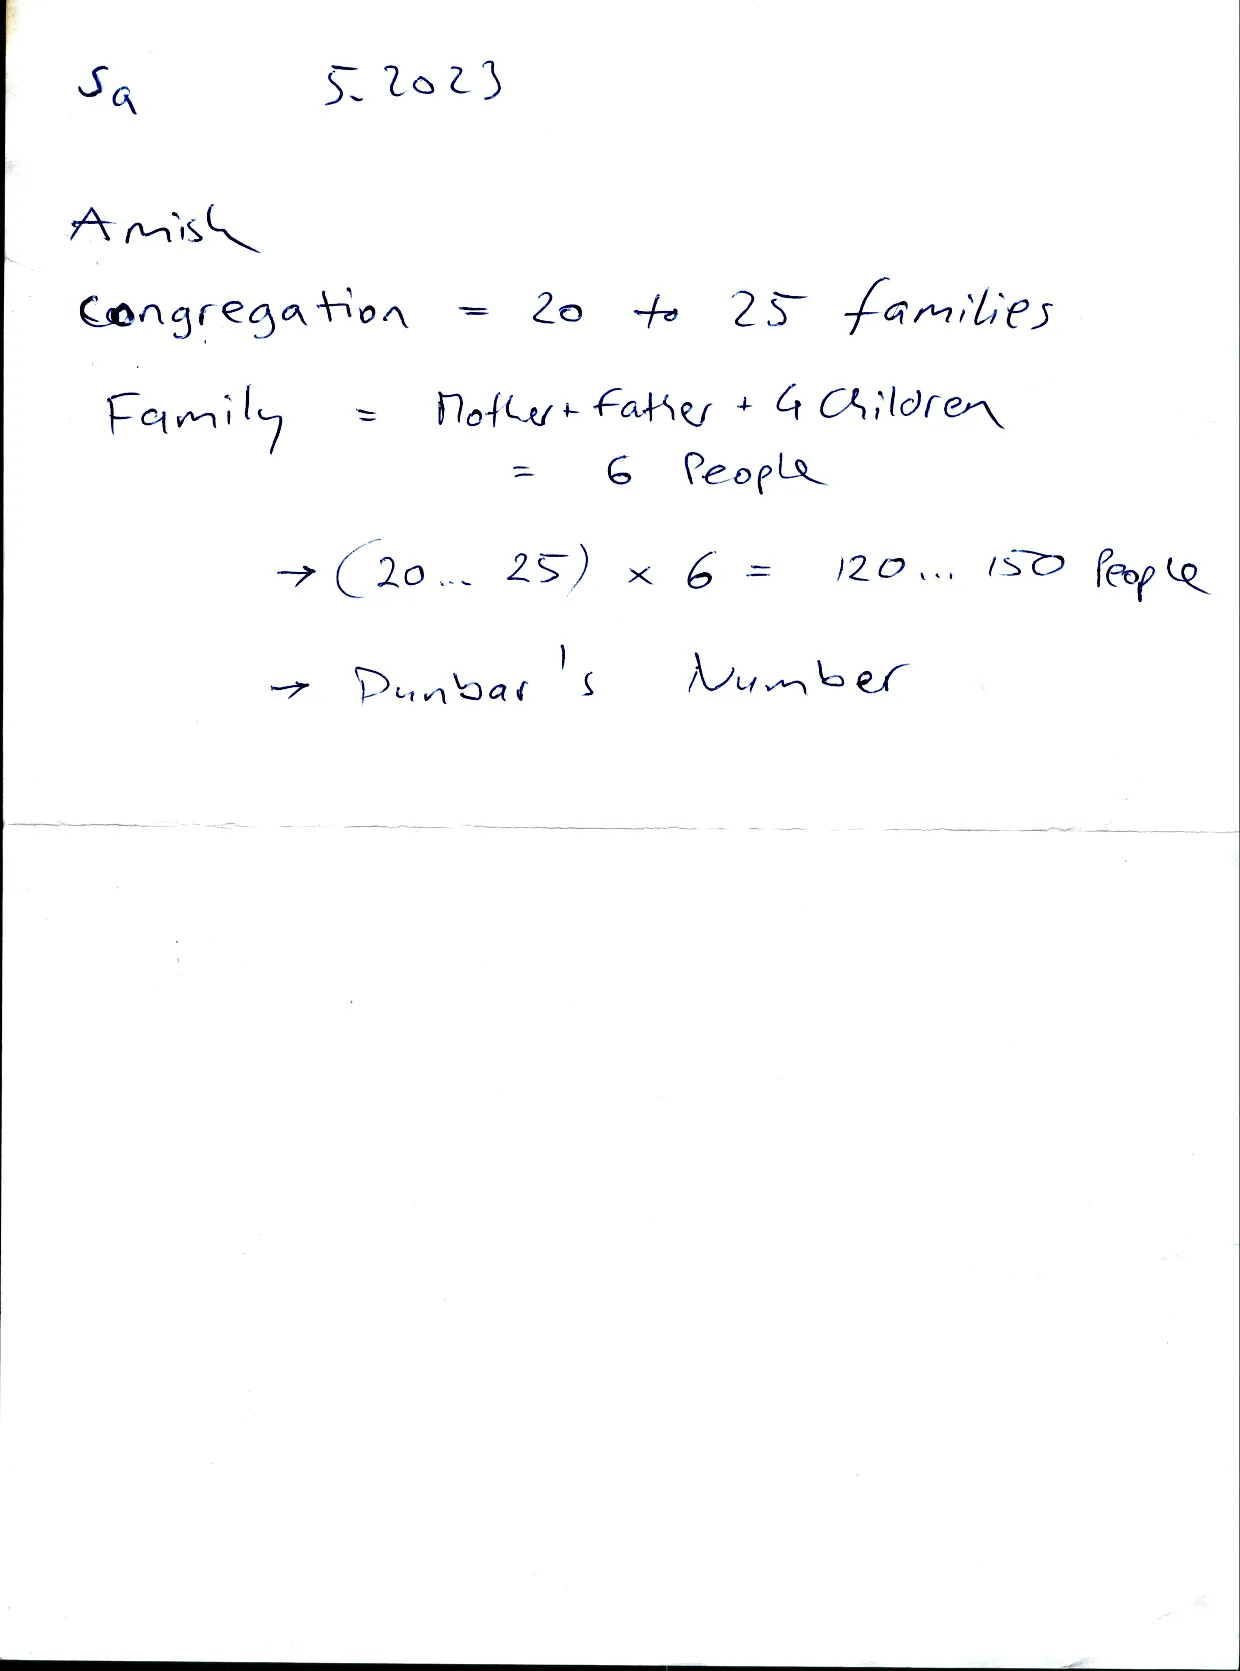 Sa 5.2023
Amish
Congregation = 20 to 25 families
Family = Mother + Father + 4 Children
= 6 People
→ (20... 25) × 6 = 120... 150 People
→ Dunbar's Number